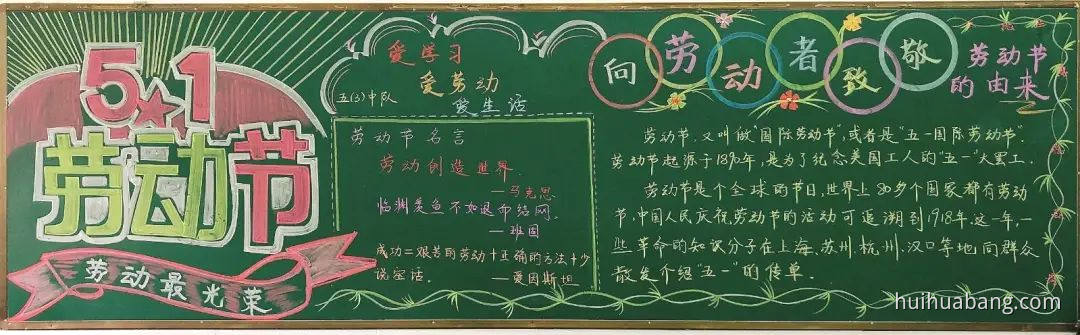 5★1
劳动节
劳动最光荣
爱学习
爱劳动
爱生活
五(3)中队
劳动节名言
劳动创造世界.
—马克思
临渊羡鱼不如退而结网.
—班固
成功=艰苦的劳动+正确的方法+少
说空话.
—爱因斯坦
向劳动者致敬
劳动节
的由来
劳动节.又叫做"国际劳动节",或者是"五一国际劳动节".
劳动节起源于1890年,是为了纪念美国工人的"五一"大罢工.
劳动节是个全球的节日,世界上80多个国家都有劳动
节,中国人民庆祝劳动节的活动可追溯到1918年.这一年,一
些革命的知识分子在上海、苏州、杭州、汉口等地向群众
散发介绍"五一"的传单.
huihuabang.com